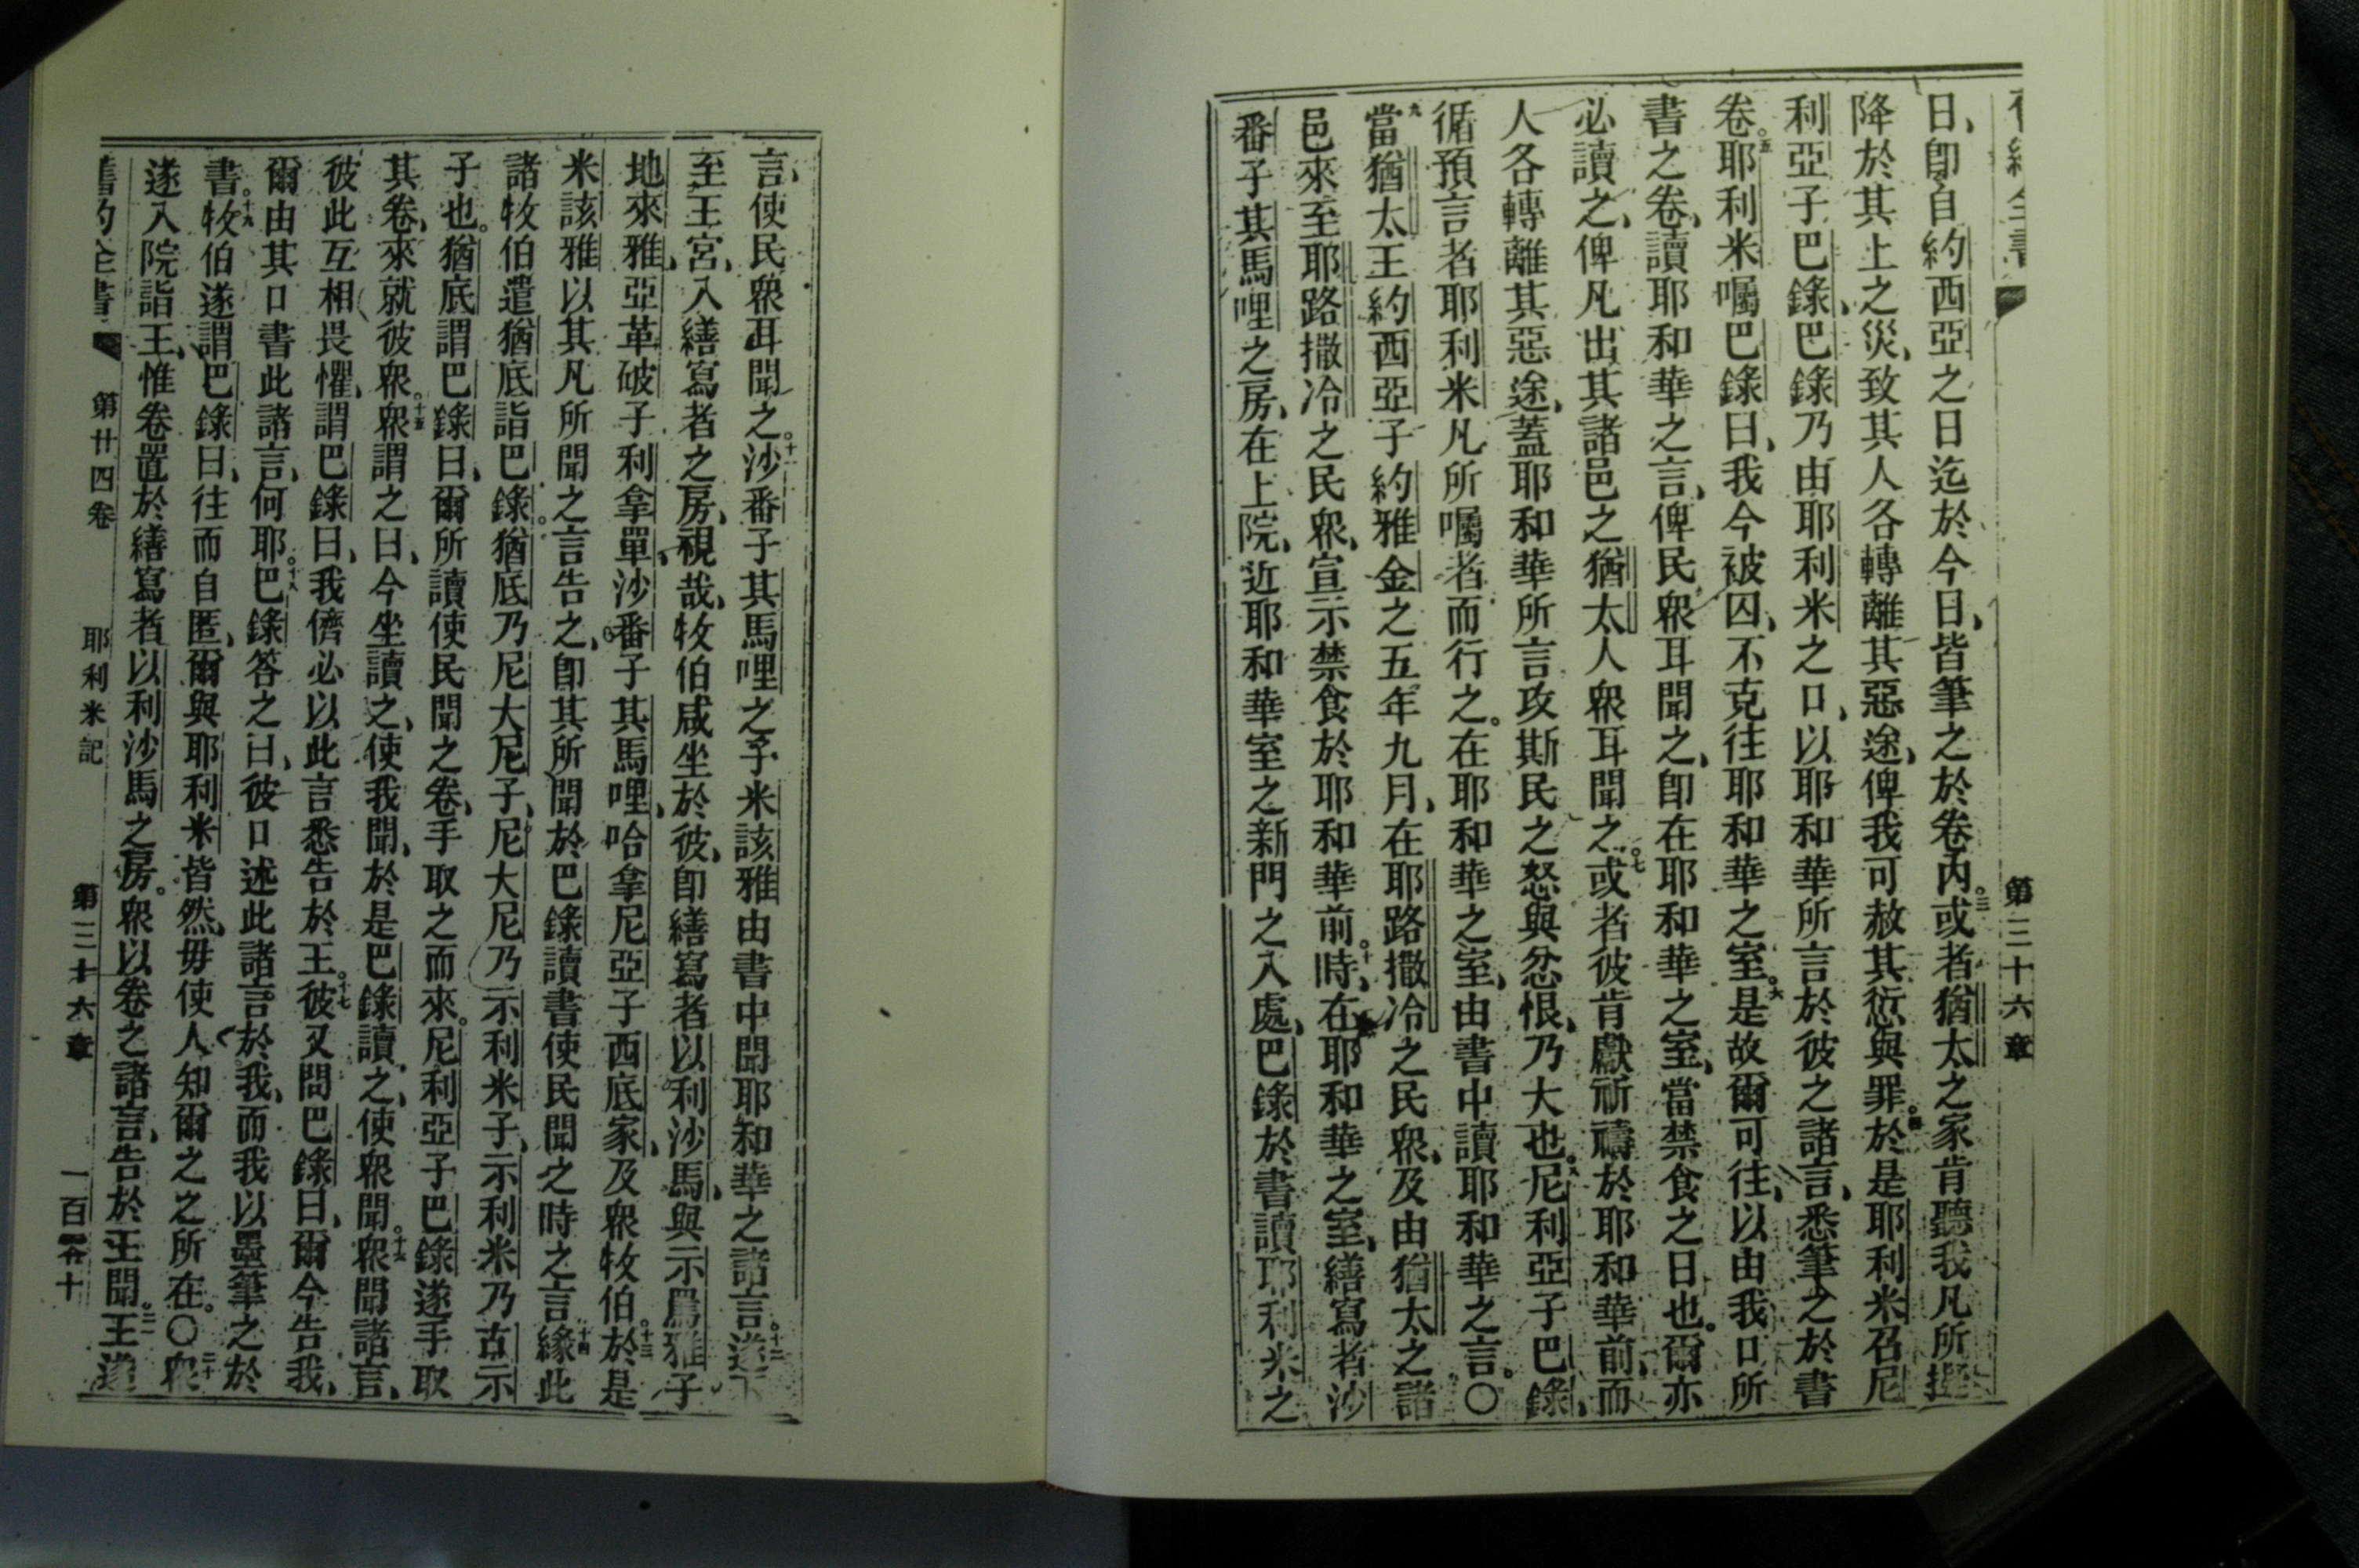 第三十六章
日、卽自約西亞之日迄於今日、皆筆之於卷內。三或者猶太之家肯聽我凡所擬
降於其上之災、致其人各轉離其惡途、俾我可赦其愆與罪。四於是耶利米召尼
利亞子巴錄、巴錄乃由耶利米之口、以耶和華所言於彼之諸言、悉筆之於書
卷。五耶利米囑巴錄曰、我今被囚、不克往耶和華之室。六是故爾可往、以由我口所
書之卷、讀耶和華之言、俾民眾耳聞之、卽在耶和華之室、當禁食之日也。爾亦
必讀之、俾凡出其諸邑之猶太人眾耳聞之。七或者彼肯獻祈禱於耶和華前、而
人各轉離其惡途、蓋耶和華所言攻斯民之怒與忿恨、乃大也。八尼利亞子巴錄、
循預言者耶利米凡所囑者而行之。在耶和華之室、由書中讀耶和華之言。〇
九當猶太王約西亞子約雅金之五年九月、在耶路撒冷之民眾、及由猶太之諸
邑來至耶路撒冷之民眾、宣示禁食於耶和華前。十時、在耶和華之室、繕寫者沙
番子其馬哩之房、在上院、近耶和華室之新門之入處、巴錄於書讀耶利米之
言、使民眾耳聞之。十一沙番子其馬哩之子米該雅由書中聞耶和華之諸言。十二遂下
至王宮、入繕寫者之房、視哉、牧伯咸坐於彼、卽繕寫者以利沙馬、與示馬雅子
地來雅、亞革破子利拿單、沙番子其馬哩、哈拿尼亞子西底家、及眾牧伯。十三於是
米該雅以其凡所聞之言告之、卽其所聞於巴錄讀書使民聞之時之言。十四緣此
諸牧伯遣猶底詣巴錄。猶底乃尼大尼子、尼大尼乃示利米子、示利米乃古示
子也。猶底謂巴錄曰、爾所讀使民聞之卷、手取之而來。尼利亞子巴錄遂手取
其卷、來就彼眾。十五眾謂之曰、今坐讀之、使我聞、於是巴錄讀之、使眾聞。十六眾聞諸言、
彼此互相畏懼、謂巴錄曰、我儕必以此言悉告於王。十七彼又問巴錄曰、爾今告我、
爾由其口書此諸言、何耶。十八巴錄答之曰、彼口述此諸言於我、而我以墨筆之於
書。十九牧伯遂謂巴錄曰、往而自匿、爾與耶利米皆然、毋使人知爾之之所在。〇二十眾
遂入院詣王、惟卷置於繕寫者以利沙馬之房。眾以卷之諸言、告於王聞。二一王遂
舊約全書 第廿四卷 耶利米記 第三十六章